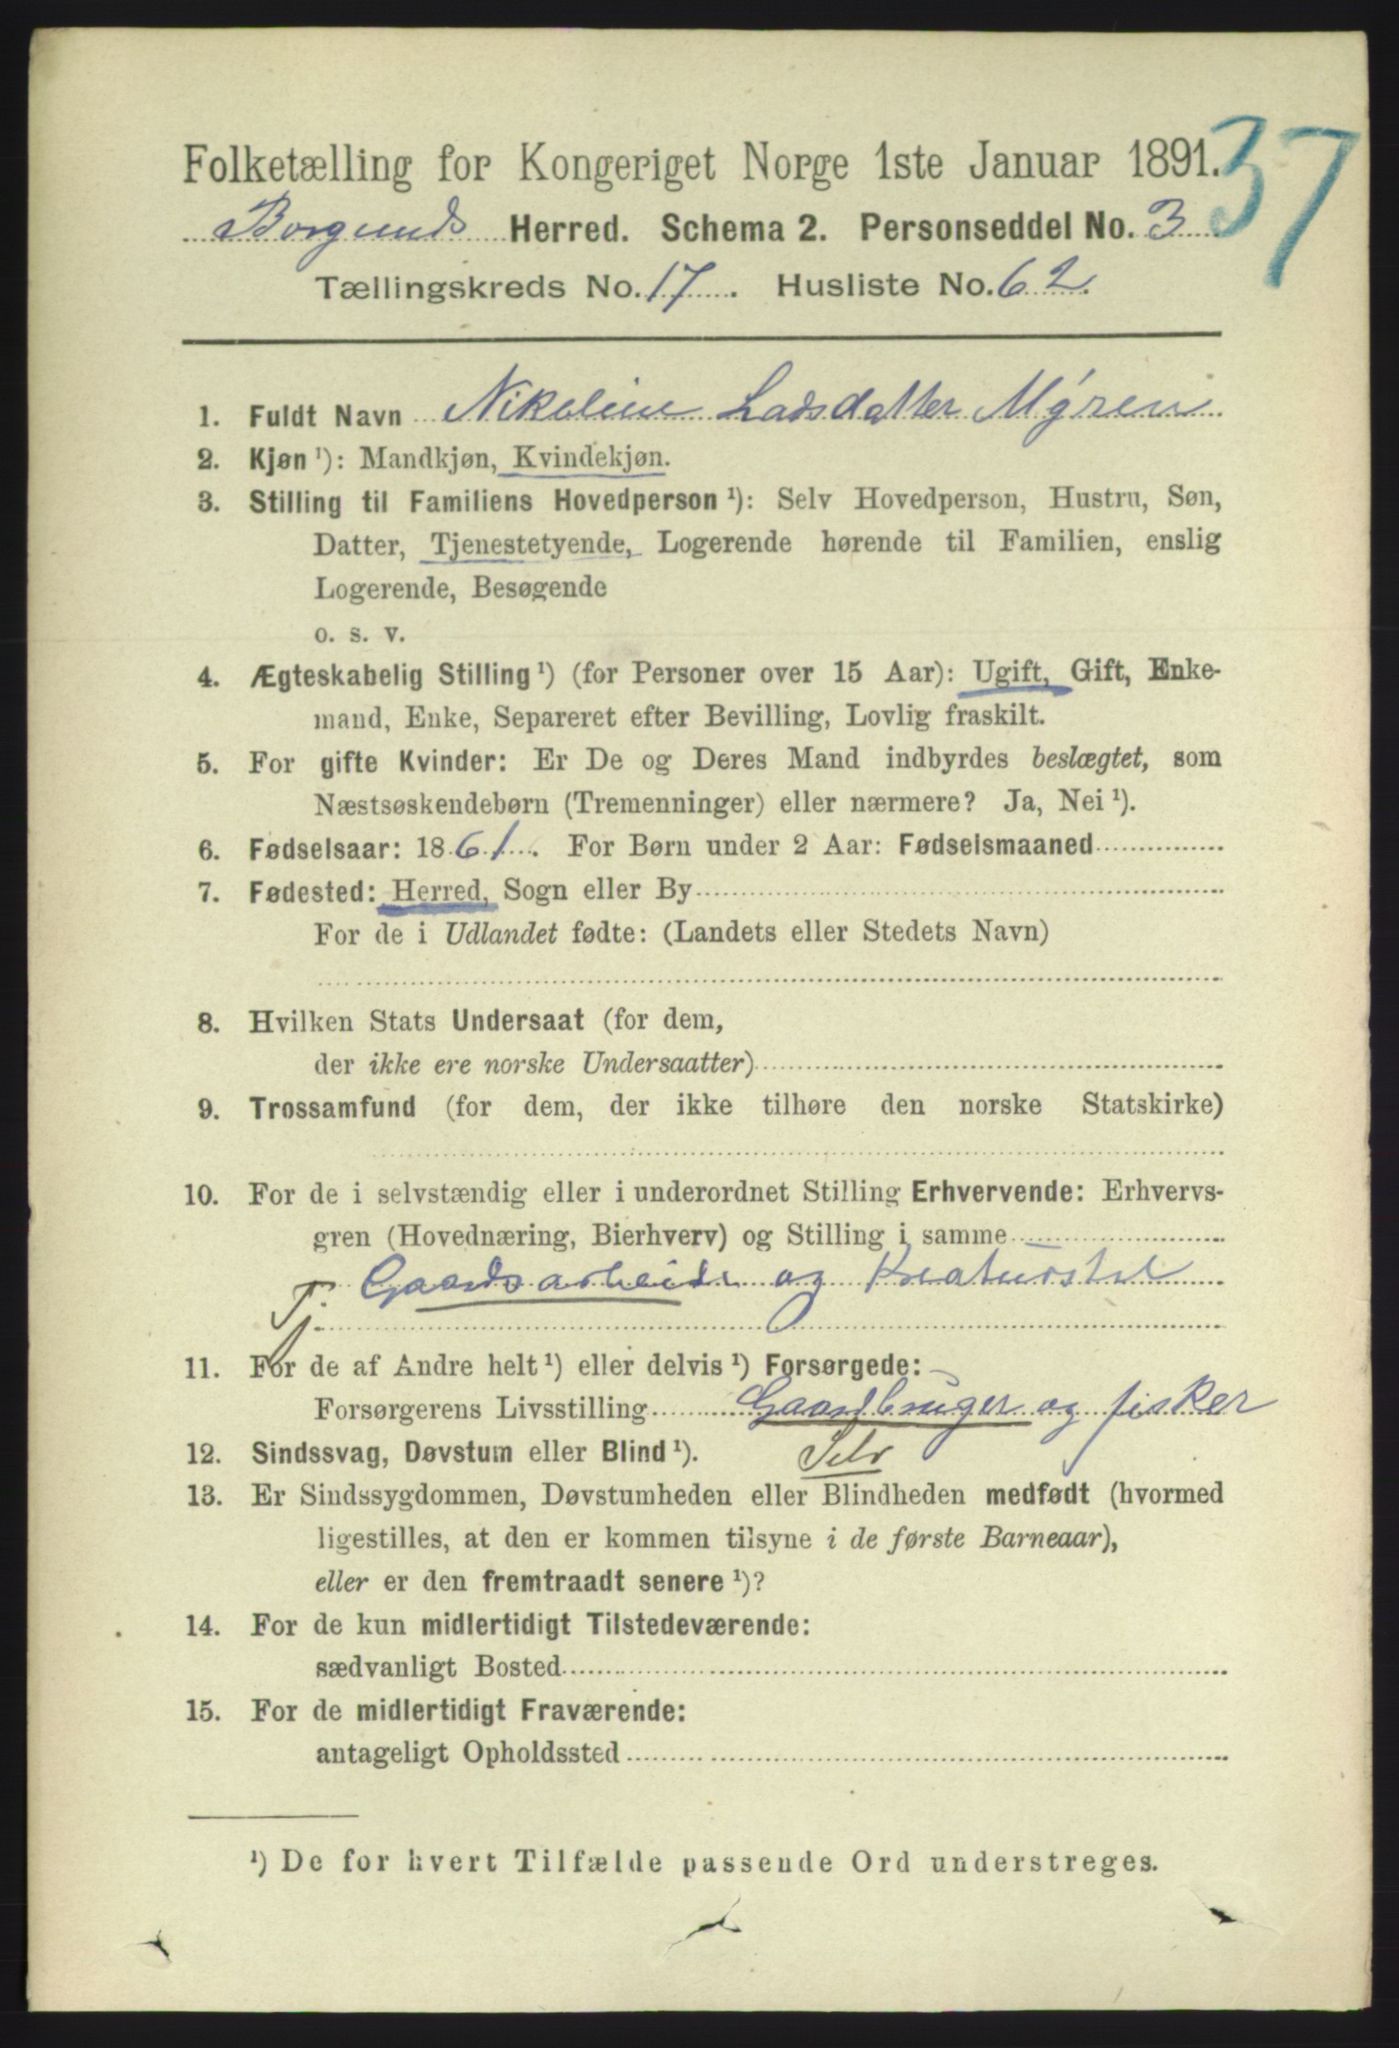 37
Folketælling for Kongeriget Norge 1ste Januar 1891.
Borgunds Herred. Schema 2. Personseddel No. 3
Tællingskreds No. 17. Husliste No. 62.
1. Fuldt Navn Nikoline Ladsdatter Myren
2. Kjøn ¹): Mandkjøn, Kvindekjøn.
3. Stilling til Familiens Hovedperson ¹): Selv Hovedperson, Hustru, Søn,
Datter, Tjenestetyende, Logerende hørende til Familien, enslig
Logerende, Besøgende
o. s. v.
4. Ægteskabelig Stilling ¹) (for Personer over 15 Aar): Ugift, Gift, Enke-
mand, Enke, Separeret efter Bevilling, Lovlig fraskilt.
5. For gifte Kvinder: Er De og Deres Mand indbyrdes beslægtet, som
Næstsøskendebørn (Tremenninger) eller nærmere? Ja, Nei ¹).
6. Fødselsaar: 1861. For Børn under 2 Aar: Fødselsmaaned
7. Fødested: Herred, Sogn eller By
For de i Udlandet fødte: (Landets eller Stedets Navn)
8. Hvilken Stats Undersaat (for dem,
der ikke ere norske Undersaatter)
9. Trossamfund (for dem, der ikke tilhøre den norske Statskirke)
10. For de i selvstændig eller i underordnet Stilling Erhvervende: Erhvervs-
gren (Hovednæring, Bierhverv) og Stilling i samme
Tj. Gaardsarbeide og Kreaturstel
11. For de af Andre helt ¹) eller delvis ¹) Forsørgede:
Forsørgerens Livsstilling Gaardbruger og fisker
12. Sindssvag, Døvstum eller Blind ¹). Selv
13. Er Sindssygdommen, Døvstumheden eller Blindheden medfødt (hvormed
ligestilles, at den er kommen tilsyne i de første Barneaar),
eller er den fremtraadt senere ¹)?
14. For de kun midlertidigt Tilstedeværende:
sædvanligt Bosted
15. For de midlertidigt Fraværende:
antageligt Opholdssted
¹) De for hvert Tilfælde passende Ord understreges.